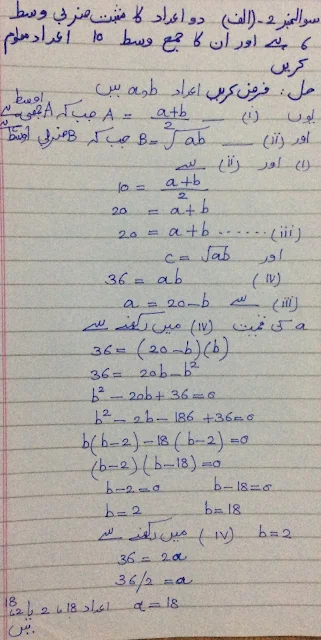 سوال نمبر 2۔ (الف) دو اعداد کا مثبت ضربی وسط
6 ہے اور ان کا جمع وسط 10 اعداد معلوم
کریں
حل: فرض کریں اعداد a و b ہیں
یوں (i) — A = a+b/2 جب کہ A جمعی اوسط ہے
اور (ii) — B = √ab جب کہ B ضربی اوسط ہے
(i) اور (ii) سے
10 = a+b/2
20 = a+b
20 = a+b ....... (iii)
اور c = √ab
36 = ab (iv)
a = 20-b سے (iii)
a کی قیمت (iv) میں رکھنے سے
36 = (20-b)(b)
36 = 20b-b²
b²-20b+36=0
b²-2b-186+36=0
b(b-2)-18(b-2)=0
(b-2)(b-18)=0
b-2=0 b-18=0
b=2 b=18
b=2 (iv) میں رکھنے سے
36 = 2a
36/2 = a
a=18 اعداد 18 یا 2 یا 2 18
ہیں